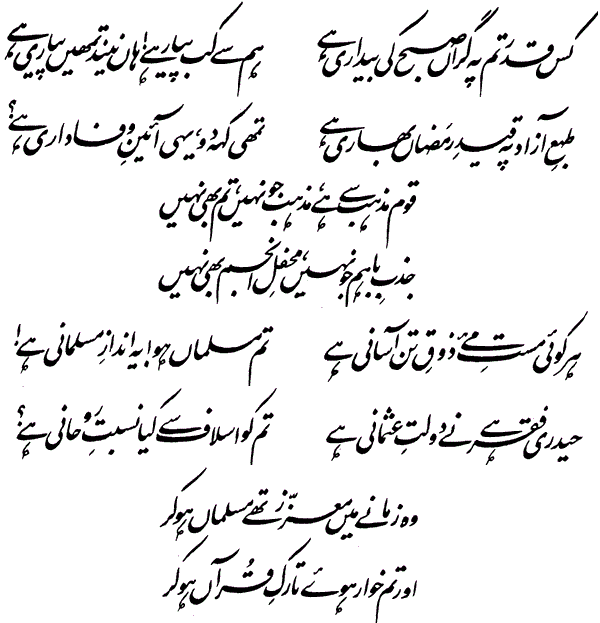 کس قدر تم پہ گراں صبح کی بیداری ہے ہم سے کب پیار ہے! ہاں نیند تمھیں پیاری ہے
طبعِ آزاد پہ قیدِ رمضاں بھاری ہے تمھی کہہ دو، یہی آئینِ وفاداری ہے؟
قوم مذہب سے ہے، مذہب جو نہیں، تم بھی نہیں
جذبِ باہم جو نہیں، محفلِ انجم بھی نہیں
ہر کوئی مستِ مئے ذوقِ تن آسانی ہے تم مسلماں ہو! یہ اندازِ مسلمانی ہے!
حیدری فقر ہے نے دولتِ عثمانی ہے تم کو اسلاف سے کیا نسبتِ روحانی ہے؟
وہ زمانے میں معزّز تھے مسلماں ہو کر
اور تم خوار ہوئے تارکِ قُرآں ہو کر